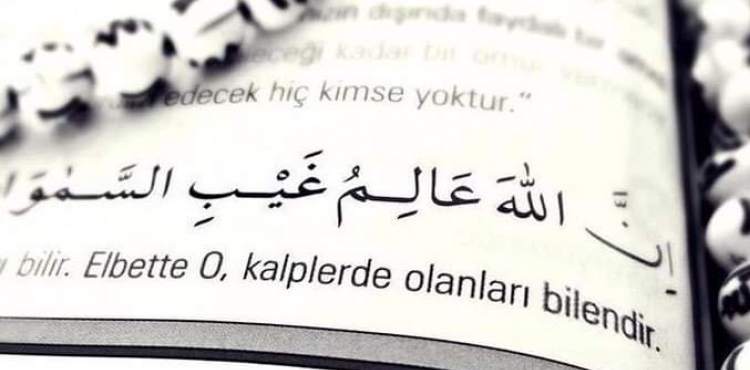 dışında faydalı bir
kadar bir
edecek hiç kimse yoktur."
اِنَّ اللّٰهَ عَالِمُ غَيْبِ
bilir. Elbette O, kalplerde olanları bilendir.